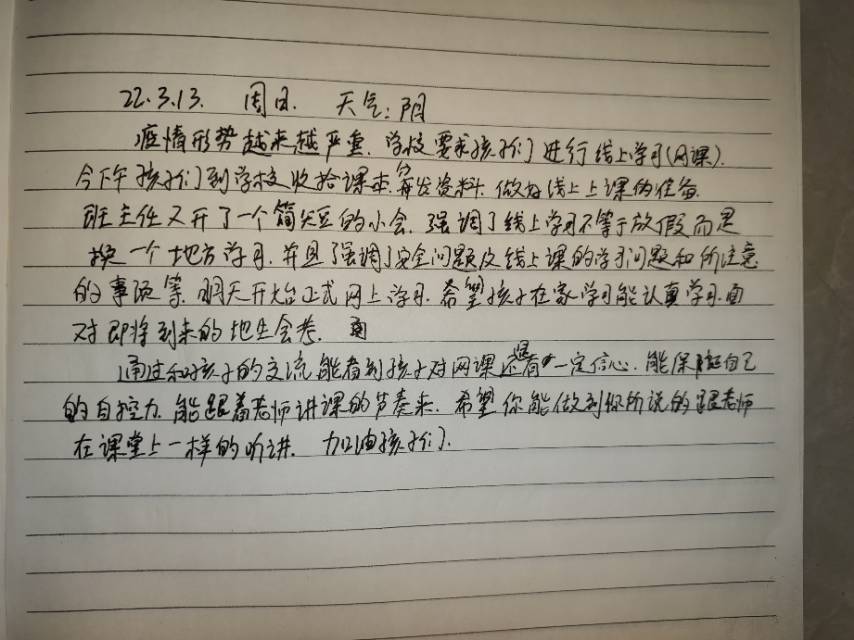 22.3.13. 周日. 天气:阴
疫情形势越来越严重.学校要求孩子们进行线上学习(网课).
今下午孩子们到学校收拾课本.分发资料.做好线上上课的准备.
班主任又开了一个简短的小会.强调了线上学习不等于放假而是
换一个地方学习.并且强调了安全问题及线上课的学习问题和所注意
的事项等.明天开始正式网上学习.希望孩子在家学习能认真学习.面
对即将到来的地生会考.
通过和孩子的交流能看到孩子对网课还是有一定信心.能保证自己
的自控力.能跟着老师讲课的节奏来.希望你能做到你所说的跟老师
在课堂上一样的听讲.加油孩子们.